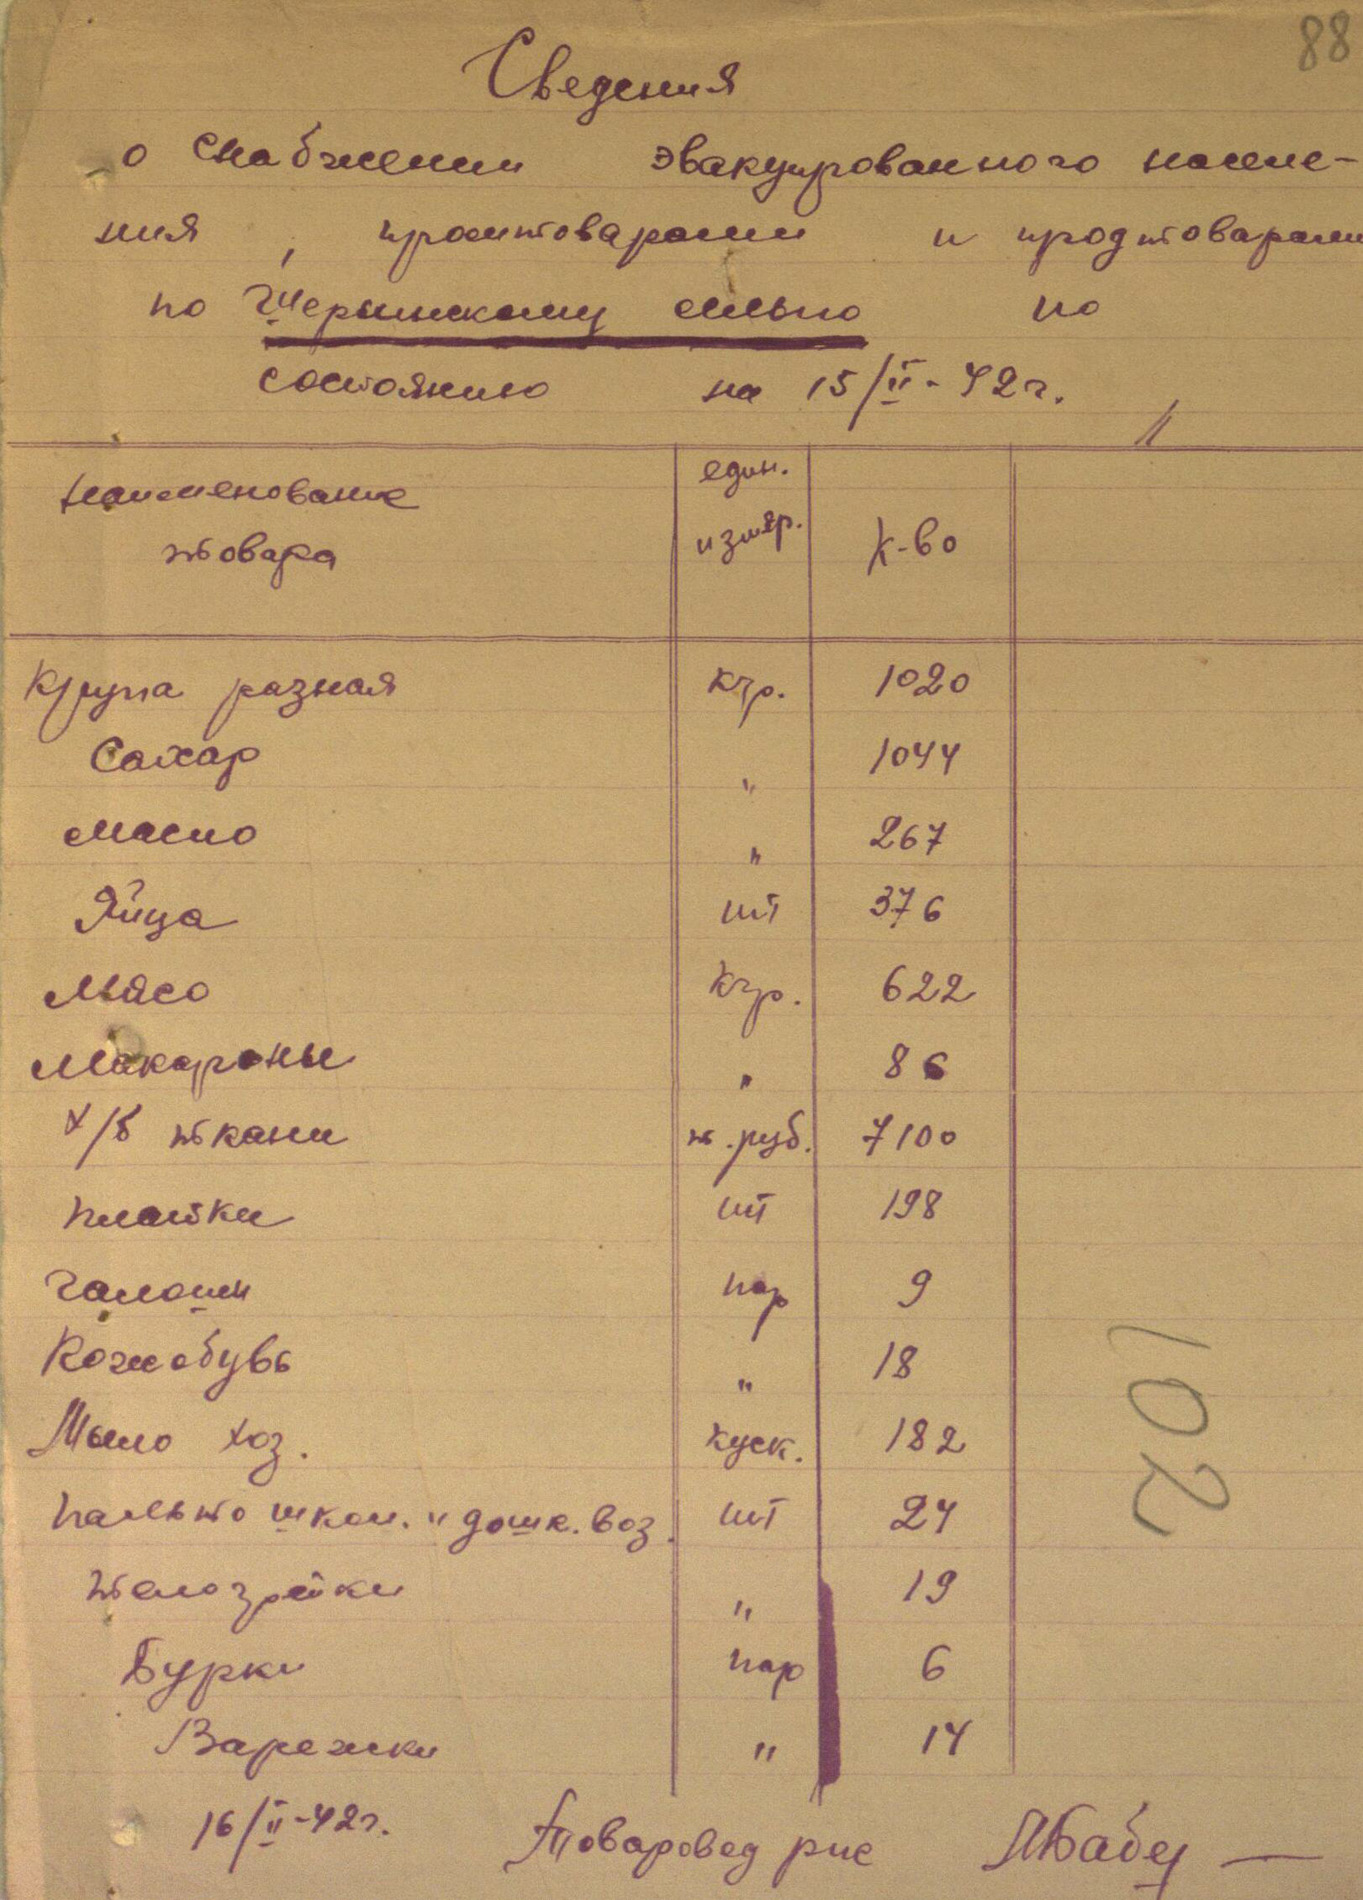 88
Сведения
о снабжении эвакуированного населе-
ния, промтоварами и продтоварами
по сельпо по
состоянию на 15/II-42г.
наименование товара един. измер. К-во
Крупа разная кгр. 1020
Сахар " 1044
масло " 267
Яйца шт 376
Мясо кгр. 622
Макароны " 86
х/б ткани т.руб. 7100
платки шт 198
галоши пар 9
Кожобувь " 18
Мыло хоз. куск. 182
пальто школ. и дошк. воз. шт 24
телогрейки " 19
Бурки пар 6
Варежки " 14
102
16/II-42г. Товаровед рпс